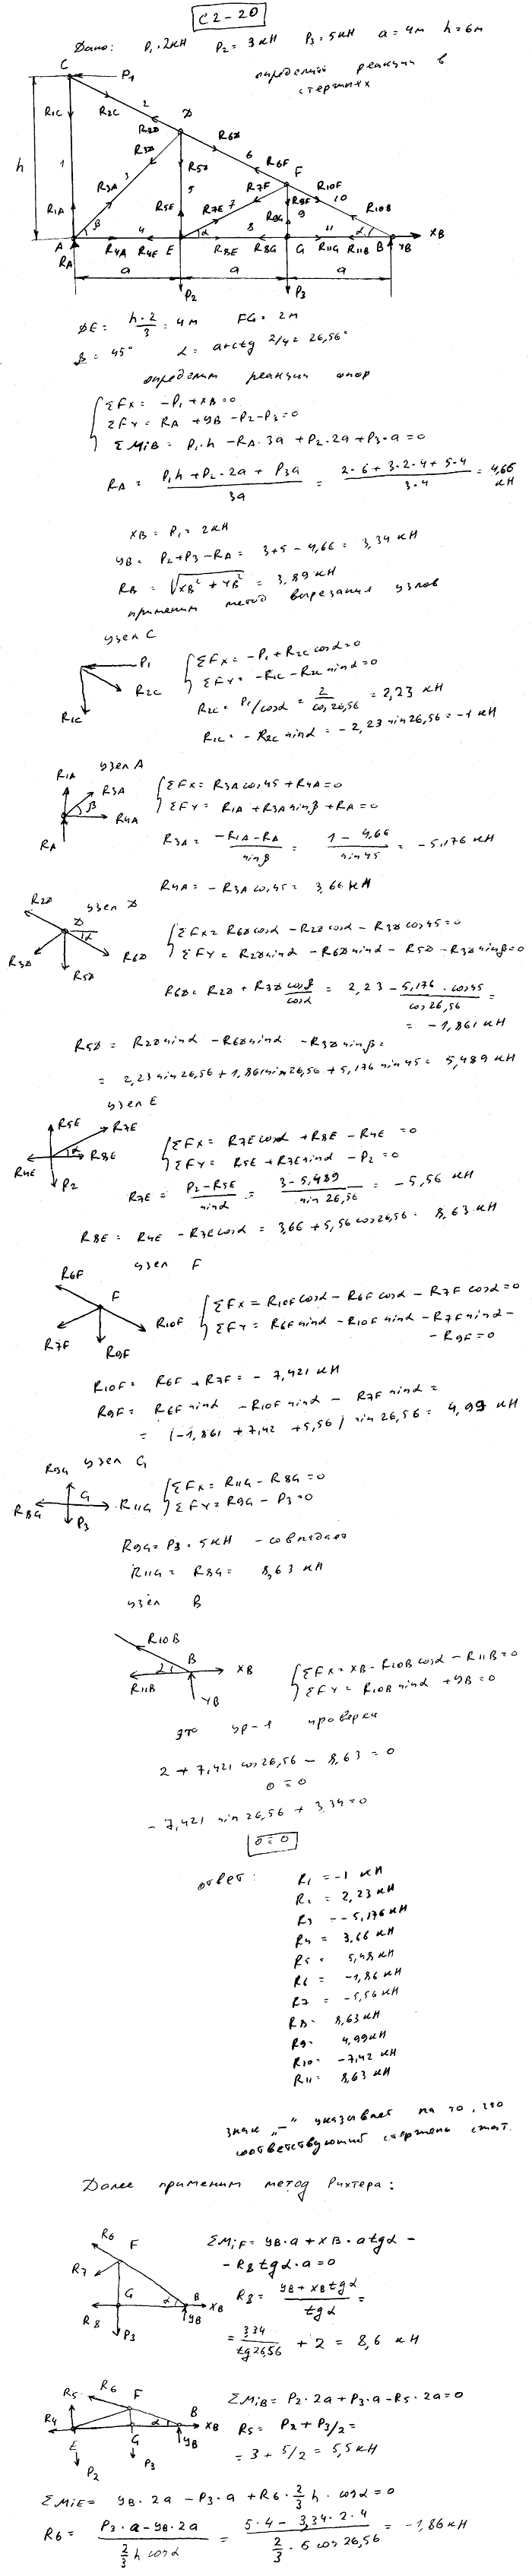 С2-20
Дано: P₁=2кН P₂=3кН P₃=5кН a=4м h=6м
определить реакции в
стержнях
C P₁
R1C R2C 2 R2D D R6D
h 1 R3D R5D 6 R6F F
R3A 3 5 R7F R9F R10F 10
R1A R5E R7E 7 R9G 9 R10B
β 4 α 8 11 α
A R4A R4E E R8E R8G G R11G R11B B XB
RA YB
a a a
P₂ P₃
DE = h·2/3 = 4м FG = 2м
β = 45° α = arctg 2/4 = 26,56°
определим реакции опор
ΣFx = -P₁+XB=0
ΣFY = RA +YB -P2-P3=0
ΣMiB = P₁·h -RA·3a +P2·2a+P3·a=0
RA = (P₁h+P2·2a+P3a)/3a = (2·6+3·2·4+5·4)/(3·4) = 4,66 кН
XB = P₁ = 2кН
YB = P2+P3-RA = 3+5-4,66 = 3,34 кН
RB = √(XB²+YB²) = 3,89 кН
применим метод вырезания узлов
узел C
P₁ R2C R1C
ΣFx = -P₁+R2C cosα=0
ΣFY = -R1C-R2C sinα=0
R2C = P₁/cosα = 2/cos26,56 = 2,23 кН
R1C = -R2C sinα = -2,23 sin26,56 = -1 кН
узел A
R1A R3A β R4A RA
ΣFx = R3A cos45 +R4A=0
ΣFY = R1A +R3A sinβ +RA=0
R3A = (-R1A-RA)/sinβ = (1-4,66)/sin45 = -5,176 кН
R4A = -R3A cos45 = 3,66 кН
узел D
R2D D α R3D R5D R6D
ΣFx = R6D cosα -R2D cosα -R3D cos45=0
ΣFY = R2D sinα -R6D sinα -R5D -R3D sinβ=0
R6D = R2D + R3D cosβ/cosα = 2,23 - 5,176·cos45/cos26,56 =
= -1,861 кН
R5D = R2D sinα -R6D sinα -R3D sinβ =
= 2,23 sin26,56 + 1,861 sin26,56 + 5,176 sin45 = 5,489 кН
узел E
R5E R7E α R8E R4E P2
ΣFx = R7E cosα +R8E -R4E =0
ΣFY = R5E +R7E sinα -P2 =0
R7E = (P2-R5E)/sinα = (3-5,489)/sin26,56 = -5,56 кН
R8E = R4E -R7E cosα = 3,66+5,56 cos26,56 = 8,63 кН
узел F
R6F F R7F R9F R10F
ΣFx = R10F cosα -R6F cosα -R7F cosα=0
ΣFY = R6F sinα -R10F sinα -R7F sinα -
-R9F=0
R10F = R6F +R7F = -7,421 кН
R9F = R6F sinα -R10F sinα - R7F sinα =
= (-1,861 +7,42 +5,56) sin26,56 = 4,99 кН
узел G
R9G G R8G R11G P3
ΣFx = R11G -R8G =0
ΣFY = R9G - P3=0
R9G = P3 = 5кН - совпадает
R11G = R8G = 8,63 кН
узел B
R10B α B XB R11B YB
ΣFx = XB -R10B cosα -R11B=0
ΣFY = R10B sinα +YB =0
это ур-я проверки
2 + 7,421 cos26,56 - 8,63 = 0
0 = 0
-7,421 sin26,56 + 3,34=0
0=0
ответ: R₁ = -1 кН
R₂ = 2,23 кН
R₃ = -5,176 кН
R4 = 3,66 кН
R5 = 5,48 кН
R6 = -1,86 кН
R7 = -5,56 кН
R8 = 8,63 кН
R9 = 4,99 кН
R10 = -7,42 кН
R11 = 8,63 кН
знак „-” указывает на то, что
соответствующий стержень сжат.
Далее применим метод Риттера:
R6 F R7 G α B XB R8 YB P3
ΣMiF = YB·a + XB·a tgα -
-R8 tgα·a=0
R8 = (YB+XB tgα)/tgα =
= 3,34/tg26,56 + 2 = 8,6 кН
R5 R6 F R4 α B XB E G YB P2 P3
ΣMiB = P2·2a+P3·a-R5·2a=0
R5 = P2 + P3/2 =
= 3 + 5/2 = 5,5 кН
ΣMiE = YB·2a -P3·a +R6·2/3 h·cosα=0
R6 = (P3·a-YB·2a)/(2/3 h cosα) = (5·4 - 3,34·2·4)/(2/3·6 cos26,56) = -1,86 кН